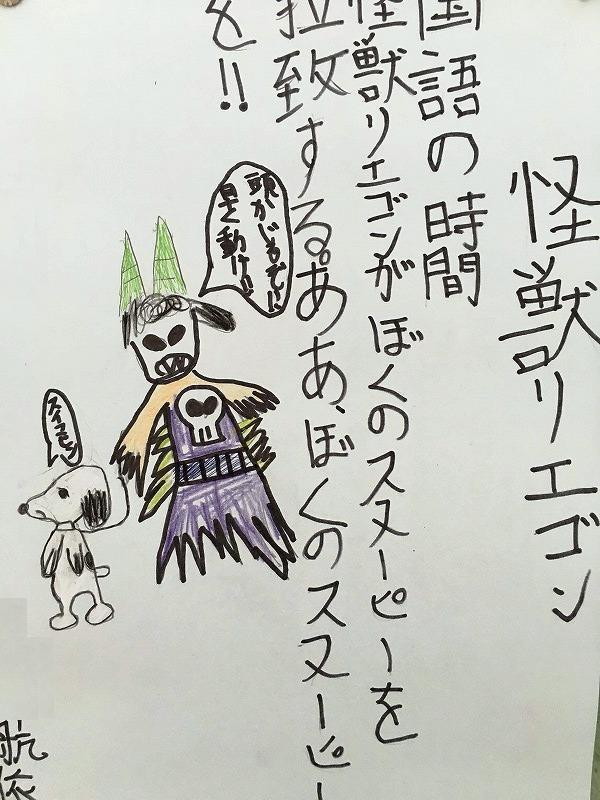 怪獣リエゴン
国語の時間
怪獣リエゴンがぼくのスヌーピーを
拉致する。ああ、ぼくのスヌーピー
を!!
頭かじるぞ!!
早く動け!!
航依